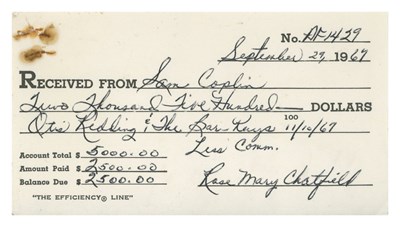 No. AF1429
September 29, 1967
RECEIVED FROM Sam Coplin
Two Thousand Five Hundred — DOLLARS
Otis Redding & The Bar Kays 11/10/67
100
Account Total $ 5000.00 Less Comm.
Amount Paid $ 2500.00
Balance Due $ 2500.00 Rose Mary Chatfield
"THE EFFICIENCY® LINE"